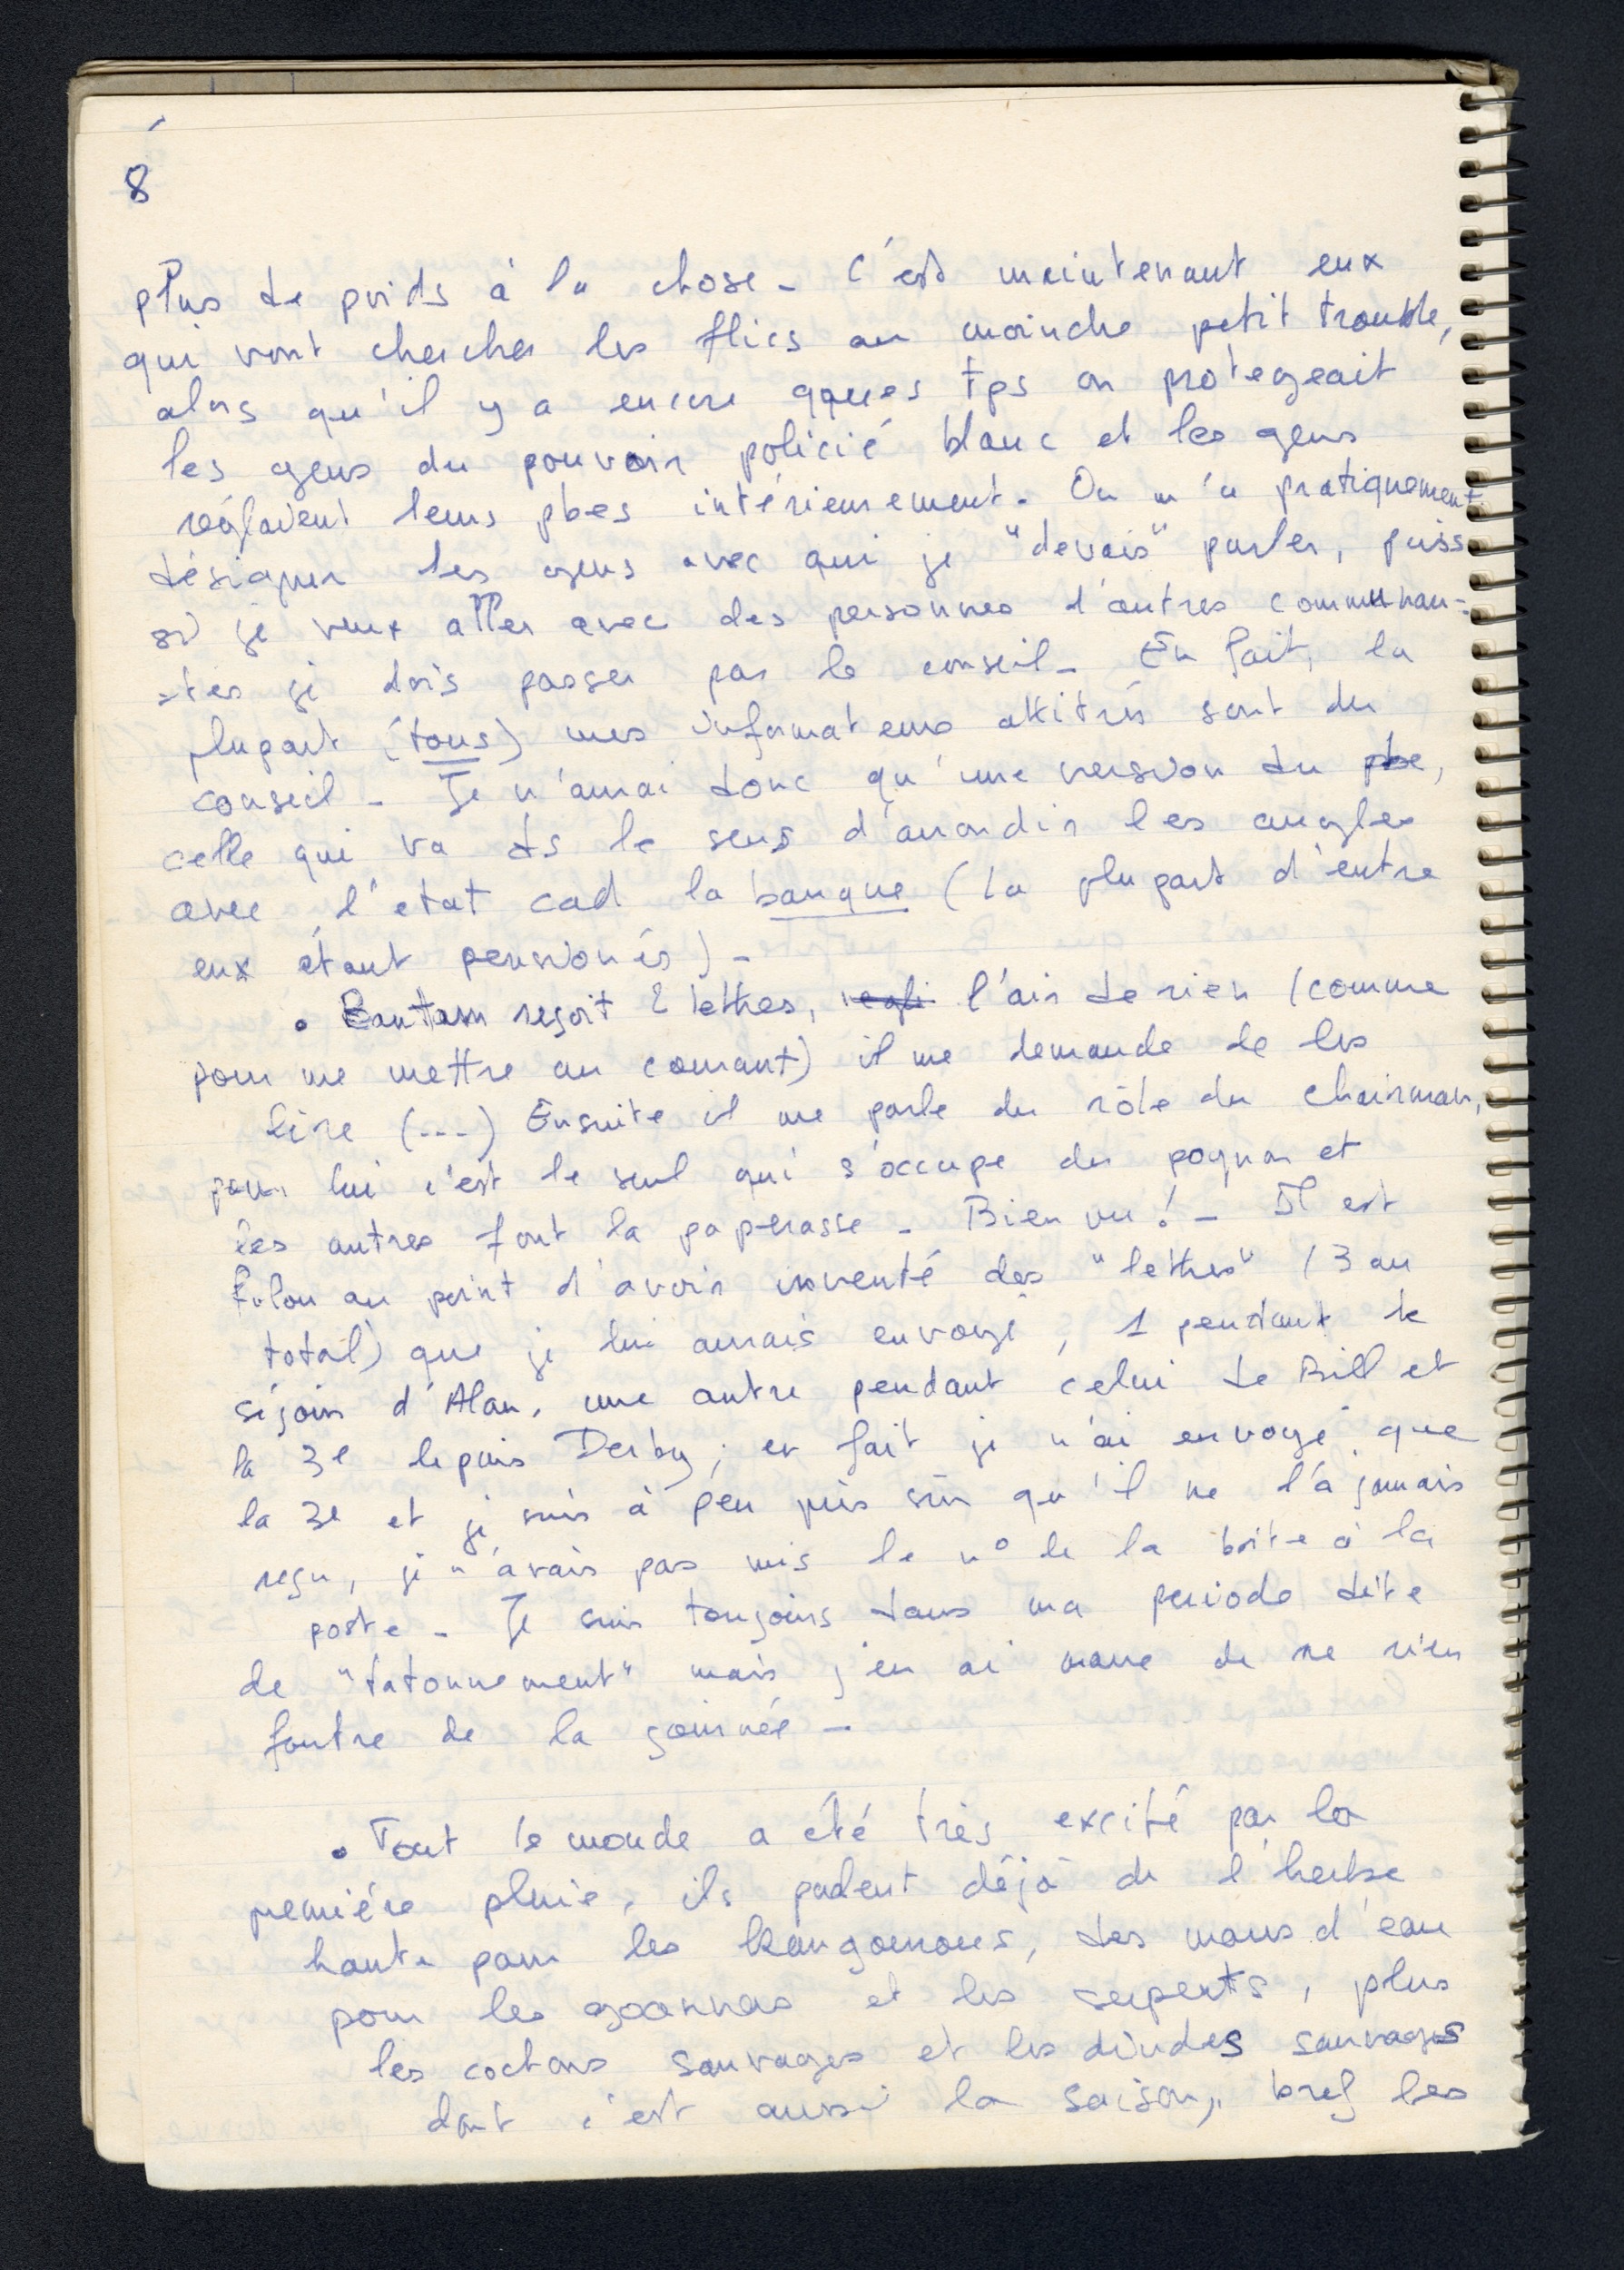 8
plus de poids à la chose - C'est maintenant eux
qui vont chercher les flics au moindre petit trouble,
alors qu'il y a encore qques tps on protegeait
les gens du pouvoir policié blanc et les gens
réglaient leurs pbes intérieurement - On m'a pratiquement
désigner les gens avec qui je "devais" parler,
si je veux aller avec des personnes d'autres communau-
-tes je dois passer par le conseil - En fait, la
plupart (tous) mes informateurs attitrés sont du
conseil - Je n'aurai donc qu'une version du pbe,
celle qui va ds le sens d'arrondir les angles
avec l'état cad la banque (la plupart d'entre
eux étant pensionés) -
• Bantam reçoit 2 lettres, l'air de rien (comme
pour me mettre au courant) il me demande de les
lire (---) Ensuite il me parle du rôle du chairman,
pour lui c'est le seul qui s'occupe du pognon et
les autres font la paperasse - Bien vu ! - Il est
filou au point d'avoir inventé des "lettres" (3 au
total) que je lui aurais envoyé, 1 pendant le
séjour d'Alan, une autre pendant celui de Bill et
la 3e depuis Derby ; en fait je n'ai envoyé que
la 3e et je suis à peu près sûr qu'il ne l'a jamais
reçu, je n'avais pas mis le n° de la boite à la
poste - Je suis toujours dans ma periode dite
de "tatonnement" mais j'en ai marre de ne rien
foutre de la journée -
• Tout le monde a été très excité par la
première pluie, ils parlent déjà de l'herbe
haute pour les kangourous, des mares d'eau
pour les goannas et les serpents, plus
les cochons sauvages et les dindes sauvages
dont c'est aussi la saison, bref les